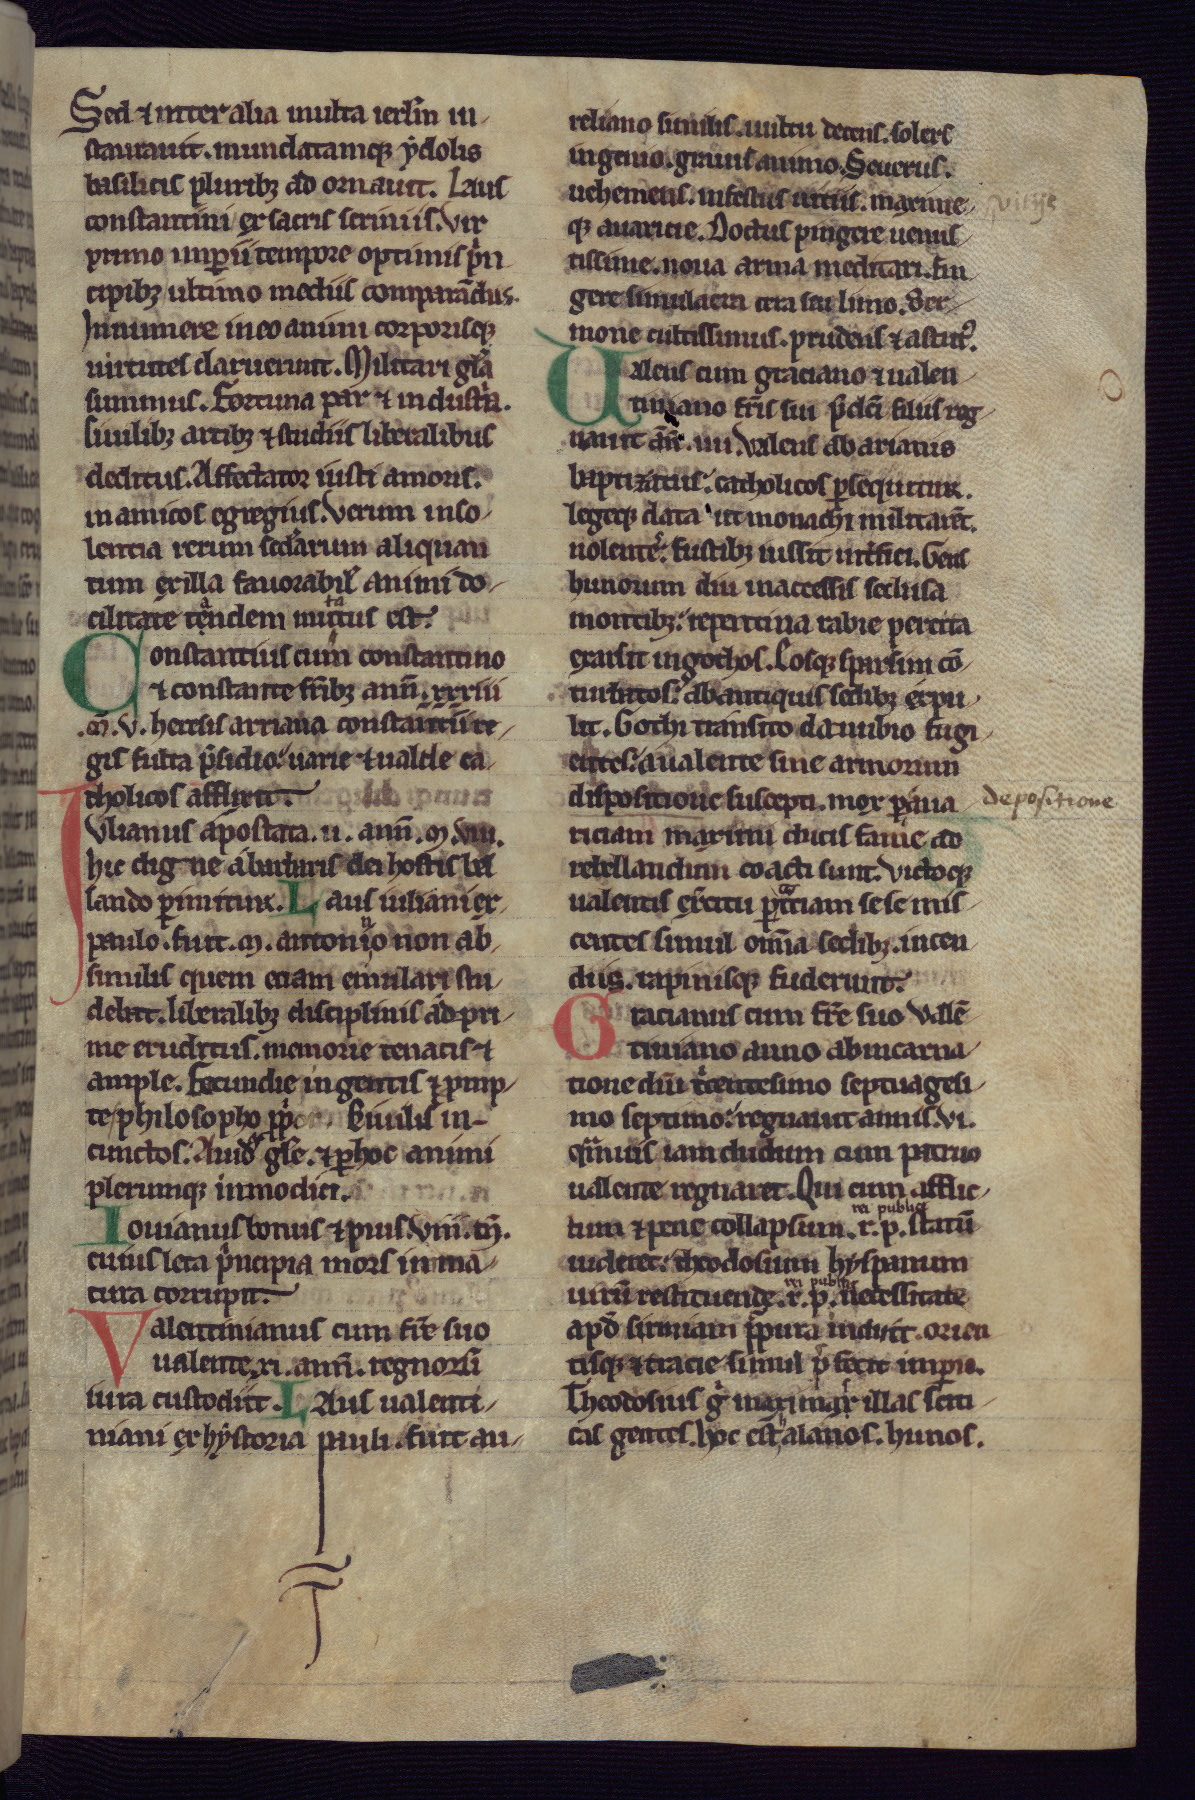 Sed ⁊ inter alia multa ierl̅m in
staurauit. mundatamq; ẏdolis
basilicis pluribꝫ ad ornauit. Laus
constantini ex sacris scriniis. Vir
primo imꝑii tempore optimis p̅n
cipibꝫ ultimo mediis comparandus.
Innumere in eo animi corporisq;
uirtutes claruerunt. Militari gl̅a
summus. Fortuna par ⁊ industria.
Siuilibꝫ artibꝫ ⁊ studiis liberalibus
deditus. Affectator iusti amoris.
in amicos egregius. Verum inso
lentia rerum secl̅arum aliquan
tum ex illa fauorabil̅ animi do
cilitate tendem mutatus est.
Constantius cum constantino
⁊ constante fr̅ibꝫ ann̅. xxiiii
.m̅. v. heresis arriana constantii re
gis fulta p̅sidio. uarie ⁊ ualde ca
tholicos afflixit.
Iulianus apostata. ii. ann̅. m̅. viii.
hic digne a barbaris dei hostis bel
lando ꝑimitur. Laus iuliani ex
paulo. Fuit .m. antonino non ab
similis quem etiam emulari stu
debat. liberalibꝫ disciplinis ad pri
me eruditus. memorie tenacis ⁊
ample. Fecundie ingentis ⁊ ꝓmp
te philosopho Siuilis in
cunctos. Auid gl̅e. ⁊ ꝑ hoc animi
plerumq; inmodici.
Iouianus bonus ⁊ pius. Viii. m̅.
cuius leta p̅ncipia mors inma
tura corrupit.
Valentinianus cum fr̅e suo
ualente. xi. ann̅. regnorum
iura custodiit. Laus ualenti
niani ex hẏstoria pauli. Fuit au
reliano similis. uultu decens. solers
ingenio. grauis animo. Seuerus.
uehemens. infestus uitiis. maxime
q; auaricie. Doctus pingere uenus
tissime. noua arma meditari. fin
gere simulacra cera seu limo. Ser
mone cultissimus. prudens ⁊ astut᷒.
Ualens cum graciano ⁊ ualen
tiniano fr̅is sui p̅dc̅i filiis reg
nauit ann̅. iiii. Valens ab arianis
baptizatus. catholicos ꝑsequitur.
legeq; data ut monachi militarent.
nolentes fustibꝫ iussit int̅fici. Gens
hunorum diu inaccessis seclusa
montibꝫ. repentina rabie percita
exarsit in gothos. Eosq; sparsim co̅
turbatos. ab antiquis sedibꝫ expu
lit. Gothi transito danubio fugi
entes. a ualente sine armorum
dispositione suscepti. mox ꝑ aua
depositione
riciam maximi ducis fame ad
rebellandum coacti sunt. Victoq;
ualentis exercitu sese mis
centes simul omnia sedibꝫ. incen
diis. rapinisq; fuderunt.
Gracianus cum fr̅e suo Vale̅
tiniano anno ab incarna
tione dn̅i trecentesimo septuagesi
mo septimo. regnauit annis. vi.
quamuis iam dudum cum patruo
ualente regnaret. Qui cum afflic
rei publice
tum ⁊ pene collapsum .r. p. statu̅
uideret. theodosium hẏspanum
rei publice
uiru̅ restituende .r. p. necessitate
apd̅ sirmiam purpura induit. orien
tisq; ⁊ tracie simul p̅fecit imꝑio.
Theodosius maximas illas sciti
cas gentes. hoc est alanos. hunos.